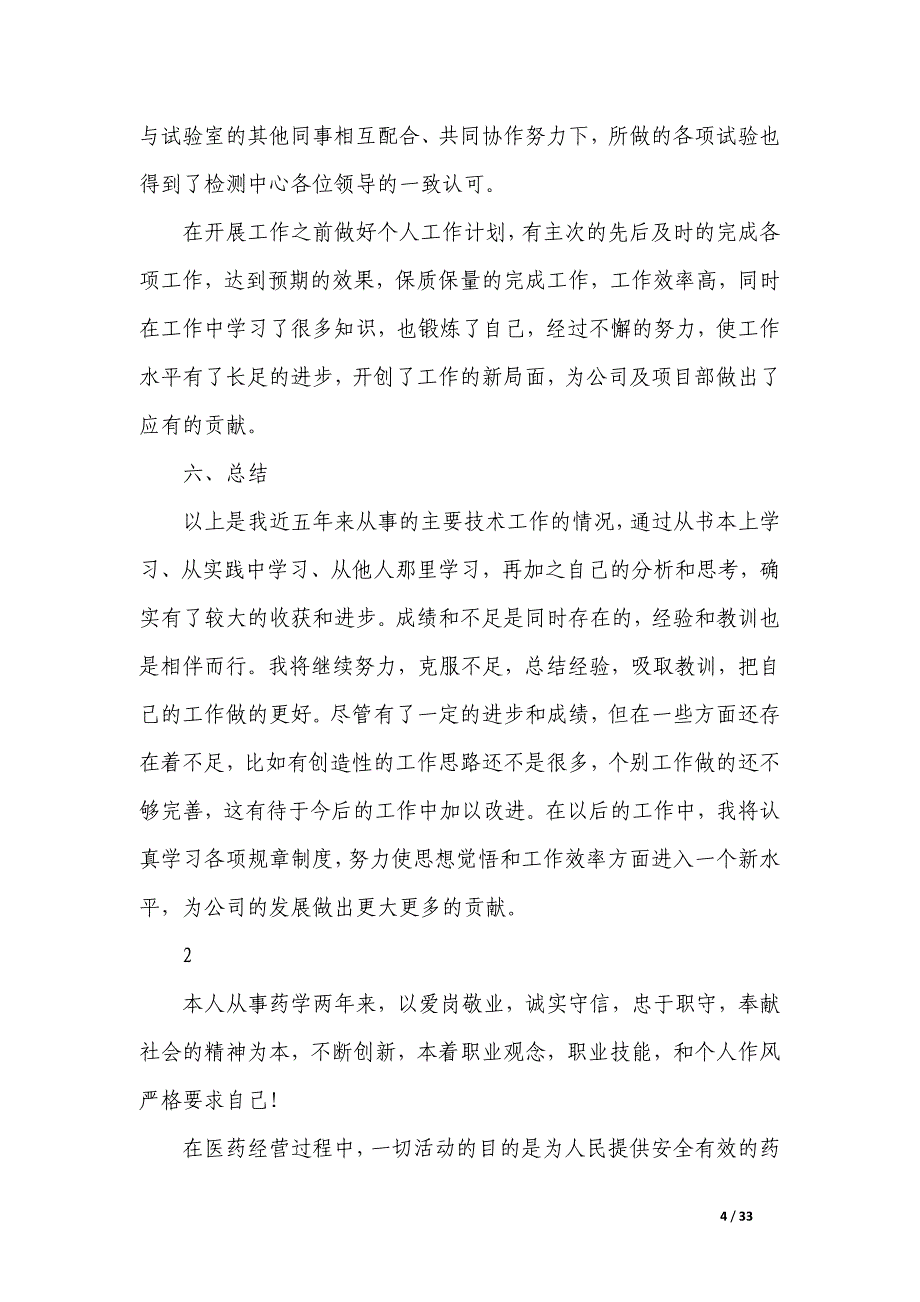 与试验室的其他同事相互配合、共同协作努力下，所做的各项试验也
得到了检测中心各位领导的一致认可。
在开展工作之前做好个人工作计划，有主次的先后及时的完成各
项工作，达到预期的效果，保质保量的完成工作，工作效率高，同时
在工作中学习了很多知识，也锻炼了自己，经过不懈的努力，使工作
水平有了长足的进步，开创了工作的新局面，为公司及项目部做出了
应有的贡献。
六、总结
以上是我近五年来从事的主要技术工作的情况，通过从书本上学
习、从实践中学习、从他人那里学习，再加之自己的分析和思考，确
实有了较大的收获和进步。成绩和不足是同时存在的，经验和教训也
是相伴而行。我将继续努力，克服不足，总结经验，吸取教训，把自
己的工作做的更好。尽管有了一定的进步和成绩，但在一些方面还存
在着不足，比如有创造性的工作思路还不是很多，个别工作做的还不
够完善，这有待于今后的工作中加以改进。在以后的工作中，我将认
真学习各项规章制度，努力使思想觉悟和工作效率方面进入一个新水
平，为公司的发展做出更大更多的贡献。
2
本人从事药学两年来，以爱岗敬业，诚实守信，忠于职守，奉献
社会的精神为本，不断创新，本着职业观念，职业技能，和个人作风
严格要求自己！
在医药经营过程中，一切活动的目的是为人民提供安全有效的药
4 / 33